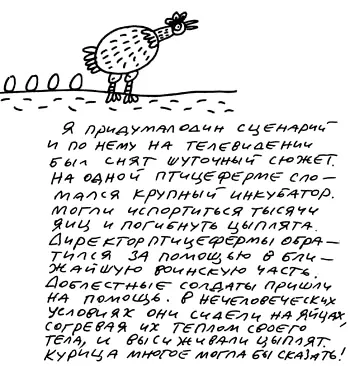 Я ПРИДУМАЛ ОДИН СЦЕНАРИЙ
И ПО НЕМУ НА ТЕЛЕВИДЕНИИ
БЫЛ СНЯТ ШУТОЧНЫЙ СЮЖЕТ.
НА ОДНОЙ ПТИЦЕФЕРМЕ СЛО-
МАЛСЯ КРУПНЫЙ ИНКУБАТОР.
МОГЛИ ИСПОРТИТЬСЯ ТЫСЯЧИ
ЯИЦ И ПОГИБНУТЬ ЦЫПЛЯТА.
ДИРЕКТОР ПТИЦЕФЕРМЫ ОБРА-
ТИЛСЯ ЗА ПОМОЩЬЮ В БЛИ-
ЖАЙШУЮ ВОИНСКУЮ ЧАСТЬ.
ДОБЛЕСТНЫЕ СОЛДАТЫ ПРИШЛИ
НА ПОМОЩЬ. В НЕЧЕЛОВЕЧЕСКИХ
УСЛОВИЯХ ОНИ СИДЕЛИ НА ЯЙЦАХ,
СОГРЕВАЯ ИХ ТЕПЛОМ СВОЕГО
ТЕЛА, И ВЫСИЖИВАЛИ ЦЫПЛЯТ.
КУРИЦА МНОГОЕ МОГЛА БЫ СКАЗАТЬ!